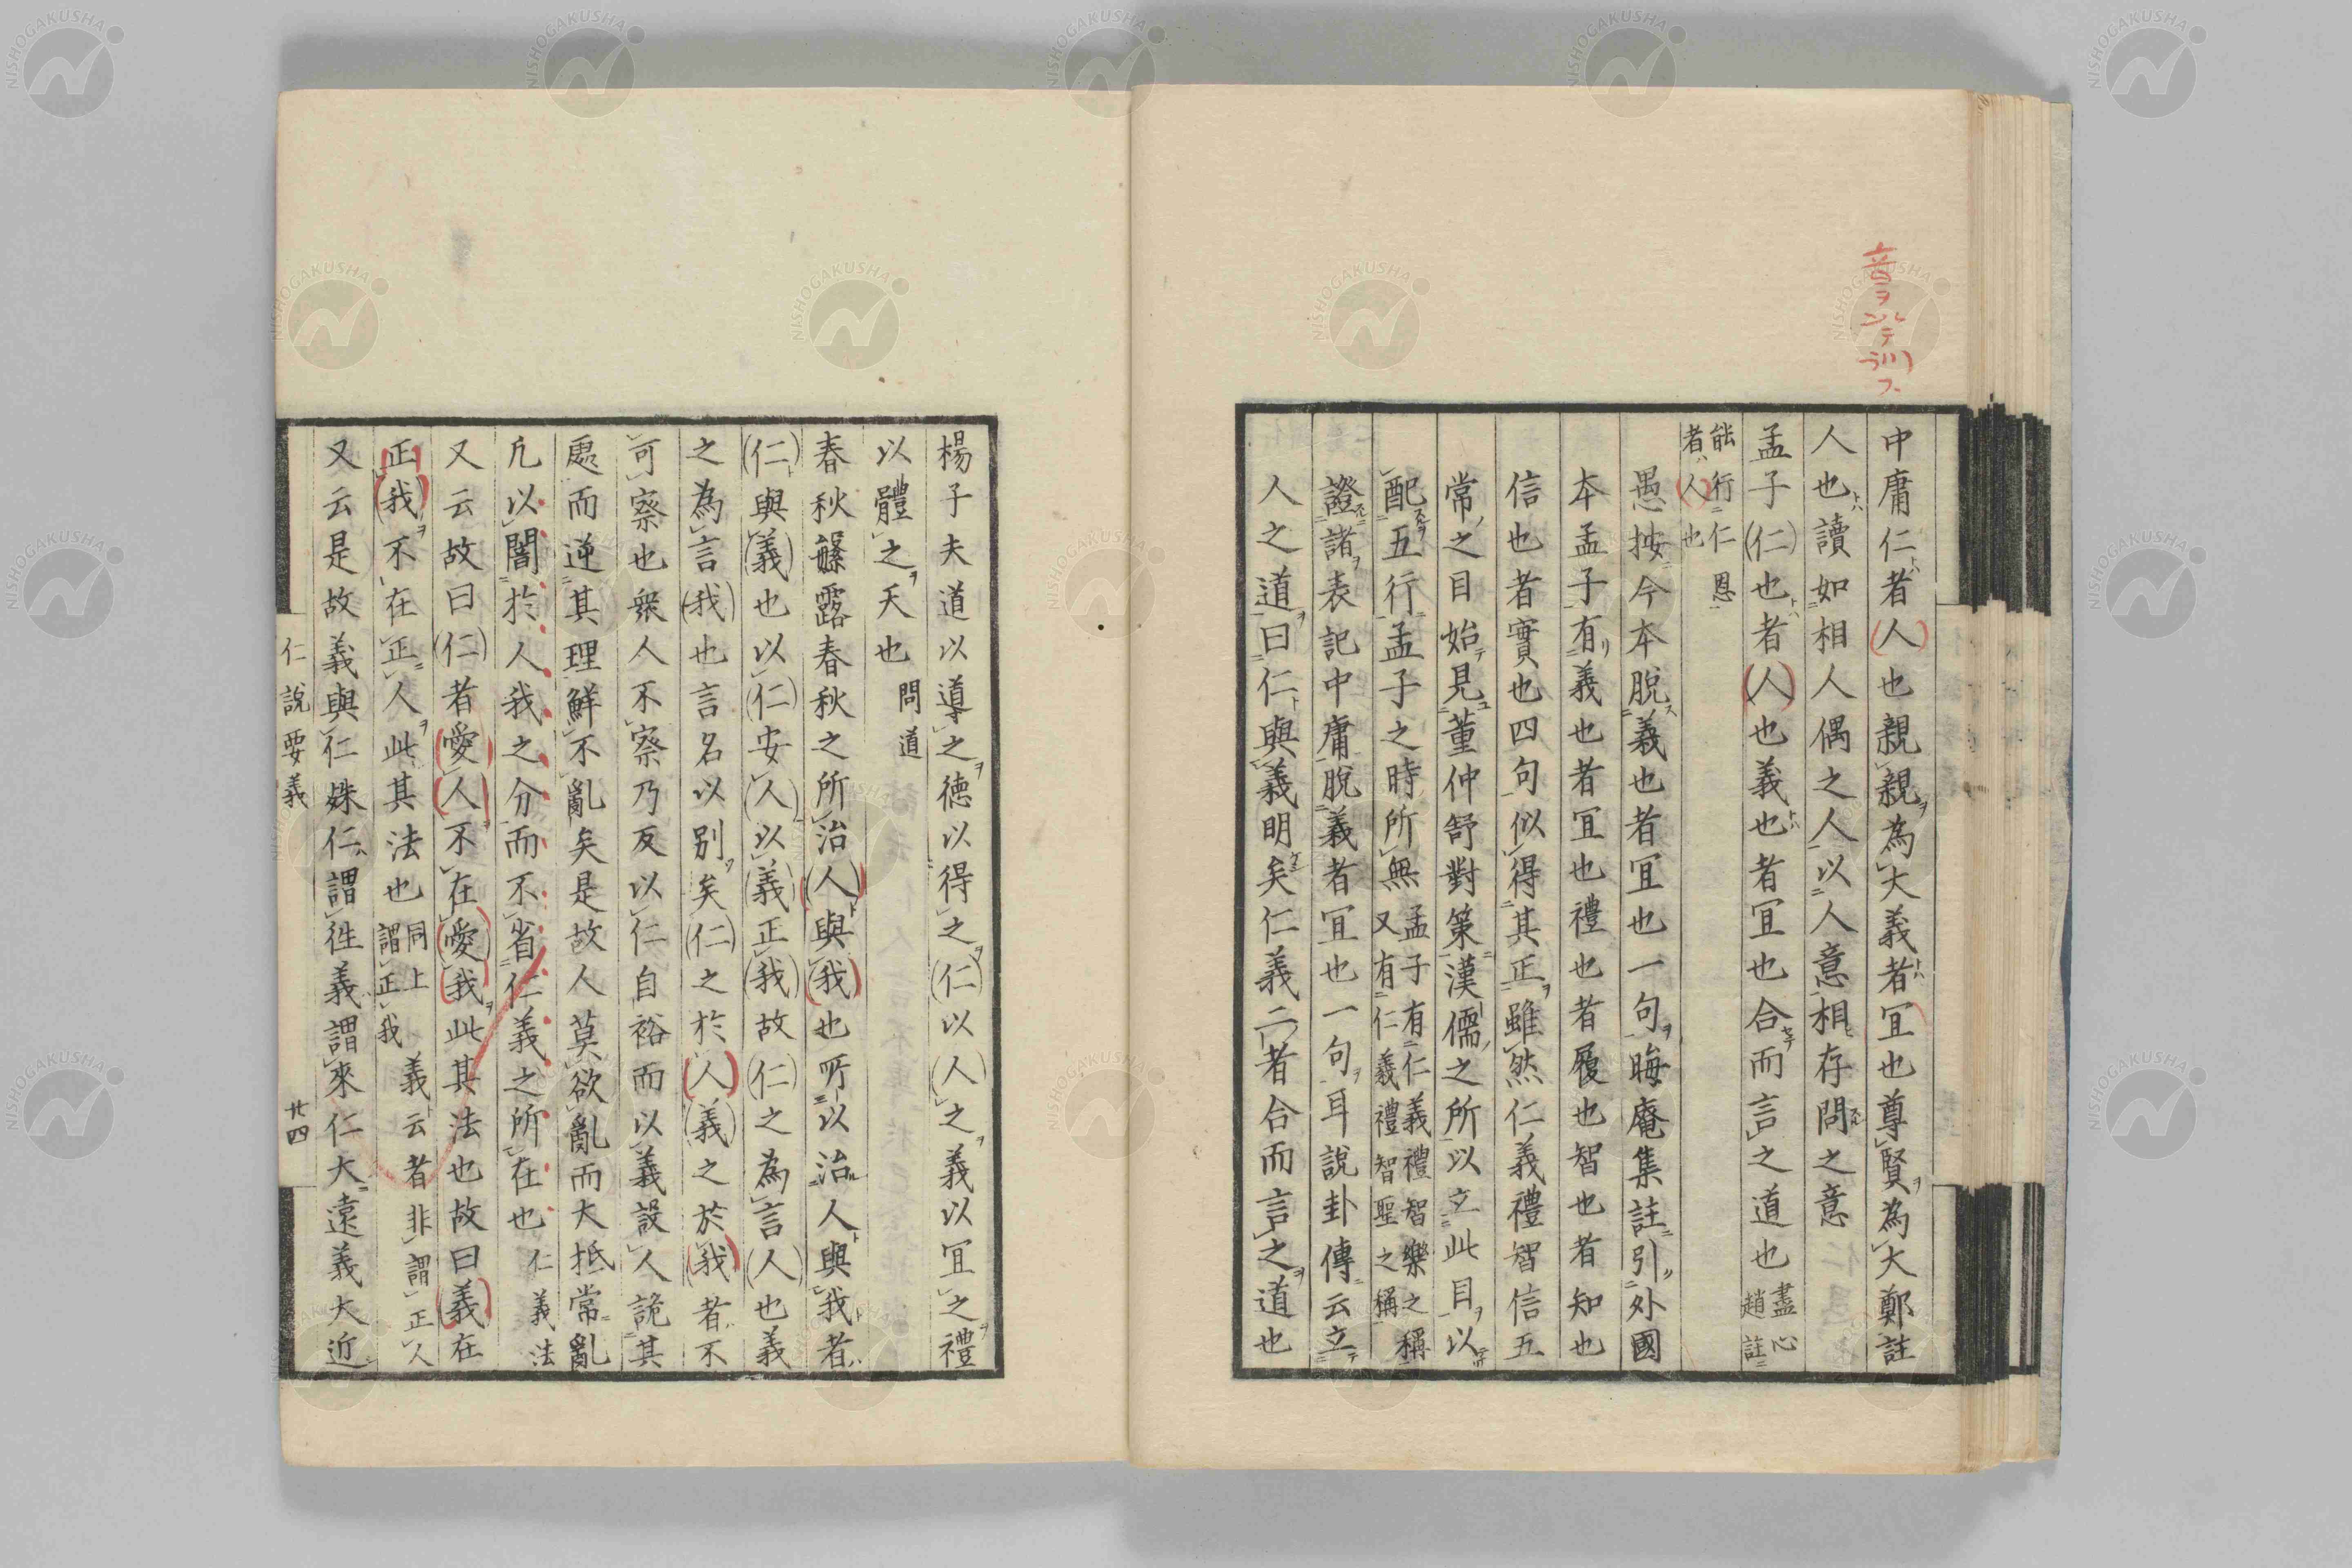 音ヲ以テ訓ズ
中庸仁者人也親親為大義者宜也尊賢為大鄭註
人也讀如相人偶之人以人意相存問之意
孟子仁也者人也義也者宜也合而言之道也盡心趙註
能行仁恩者人也
愚按今本脫義也者宜也一句晦庵集註引外國
本孟子有義也者宜也禮也者履也智也者知也
信也者實也四句似得其正雖然仁義禮智信五
常之目始見董仲舒對策漢儒之所以立此目以
配五行孟子之時所無孟子有仁義禮智樂之稱又有仁義禮智聖之稱
證諸表記中庸脫義者宜也一句耳說卦傳云立
人之道曰仁與義明矣仁義二者合而言之道也
楊子夫道以導之德以得之仁以人之義以宜之禮
以體之天也問道
春秋繇露春秋之所治人與我也所以治人與我者
仁與義也以仁安人以義正我故仁之為言人也義
之為言我也言名以別矣仁之於人義之於我者不
可察也衆人不察乃反以仁自裕而以義設人詭其
處而逆其理鮮不亂矣是故人莫欲亂而大抵常亂
凢以闇於人我之分而不省仁義之所在也仁義法
又云故曰仁者愛人不在愛我此其法也故曰義在
正我不在正人此其法也同上謂正我義云者非謂正人
又云是故義與仁姝仁謂徃義謂來仁大遠義大近
仁說要義
廿四
NISHOGAKUSHA